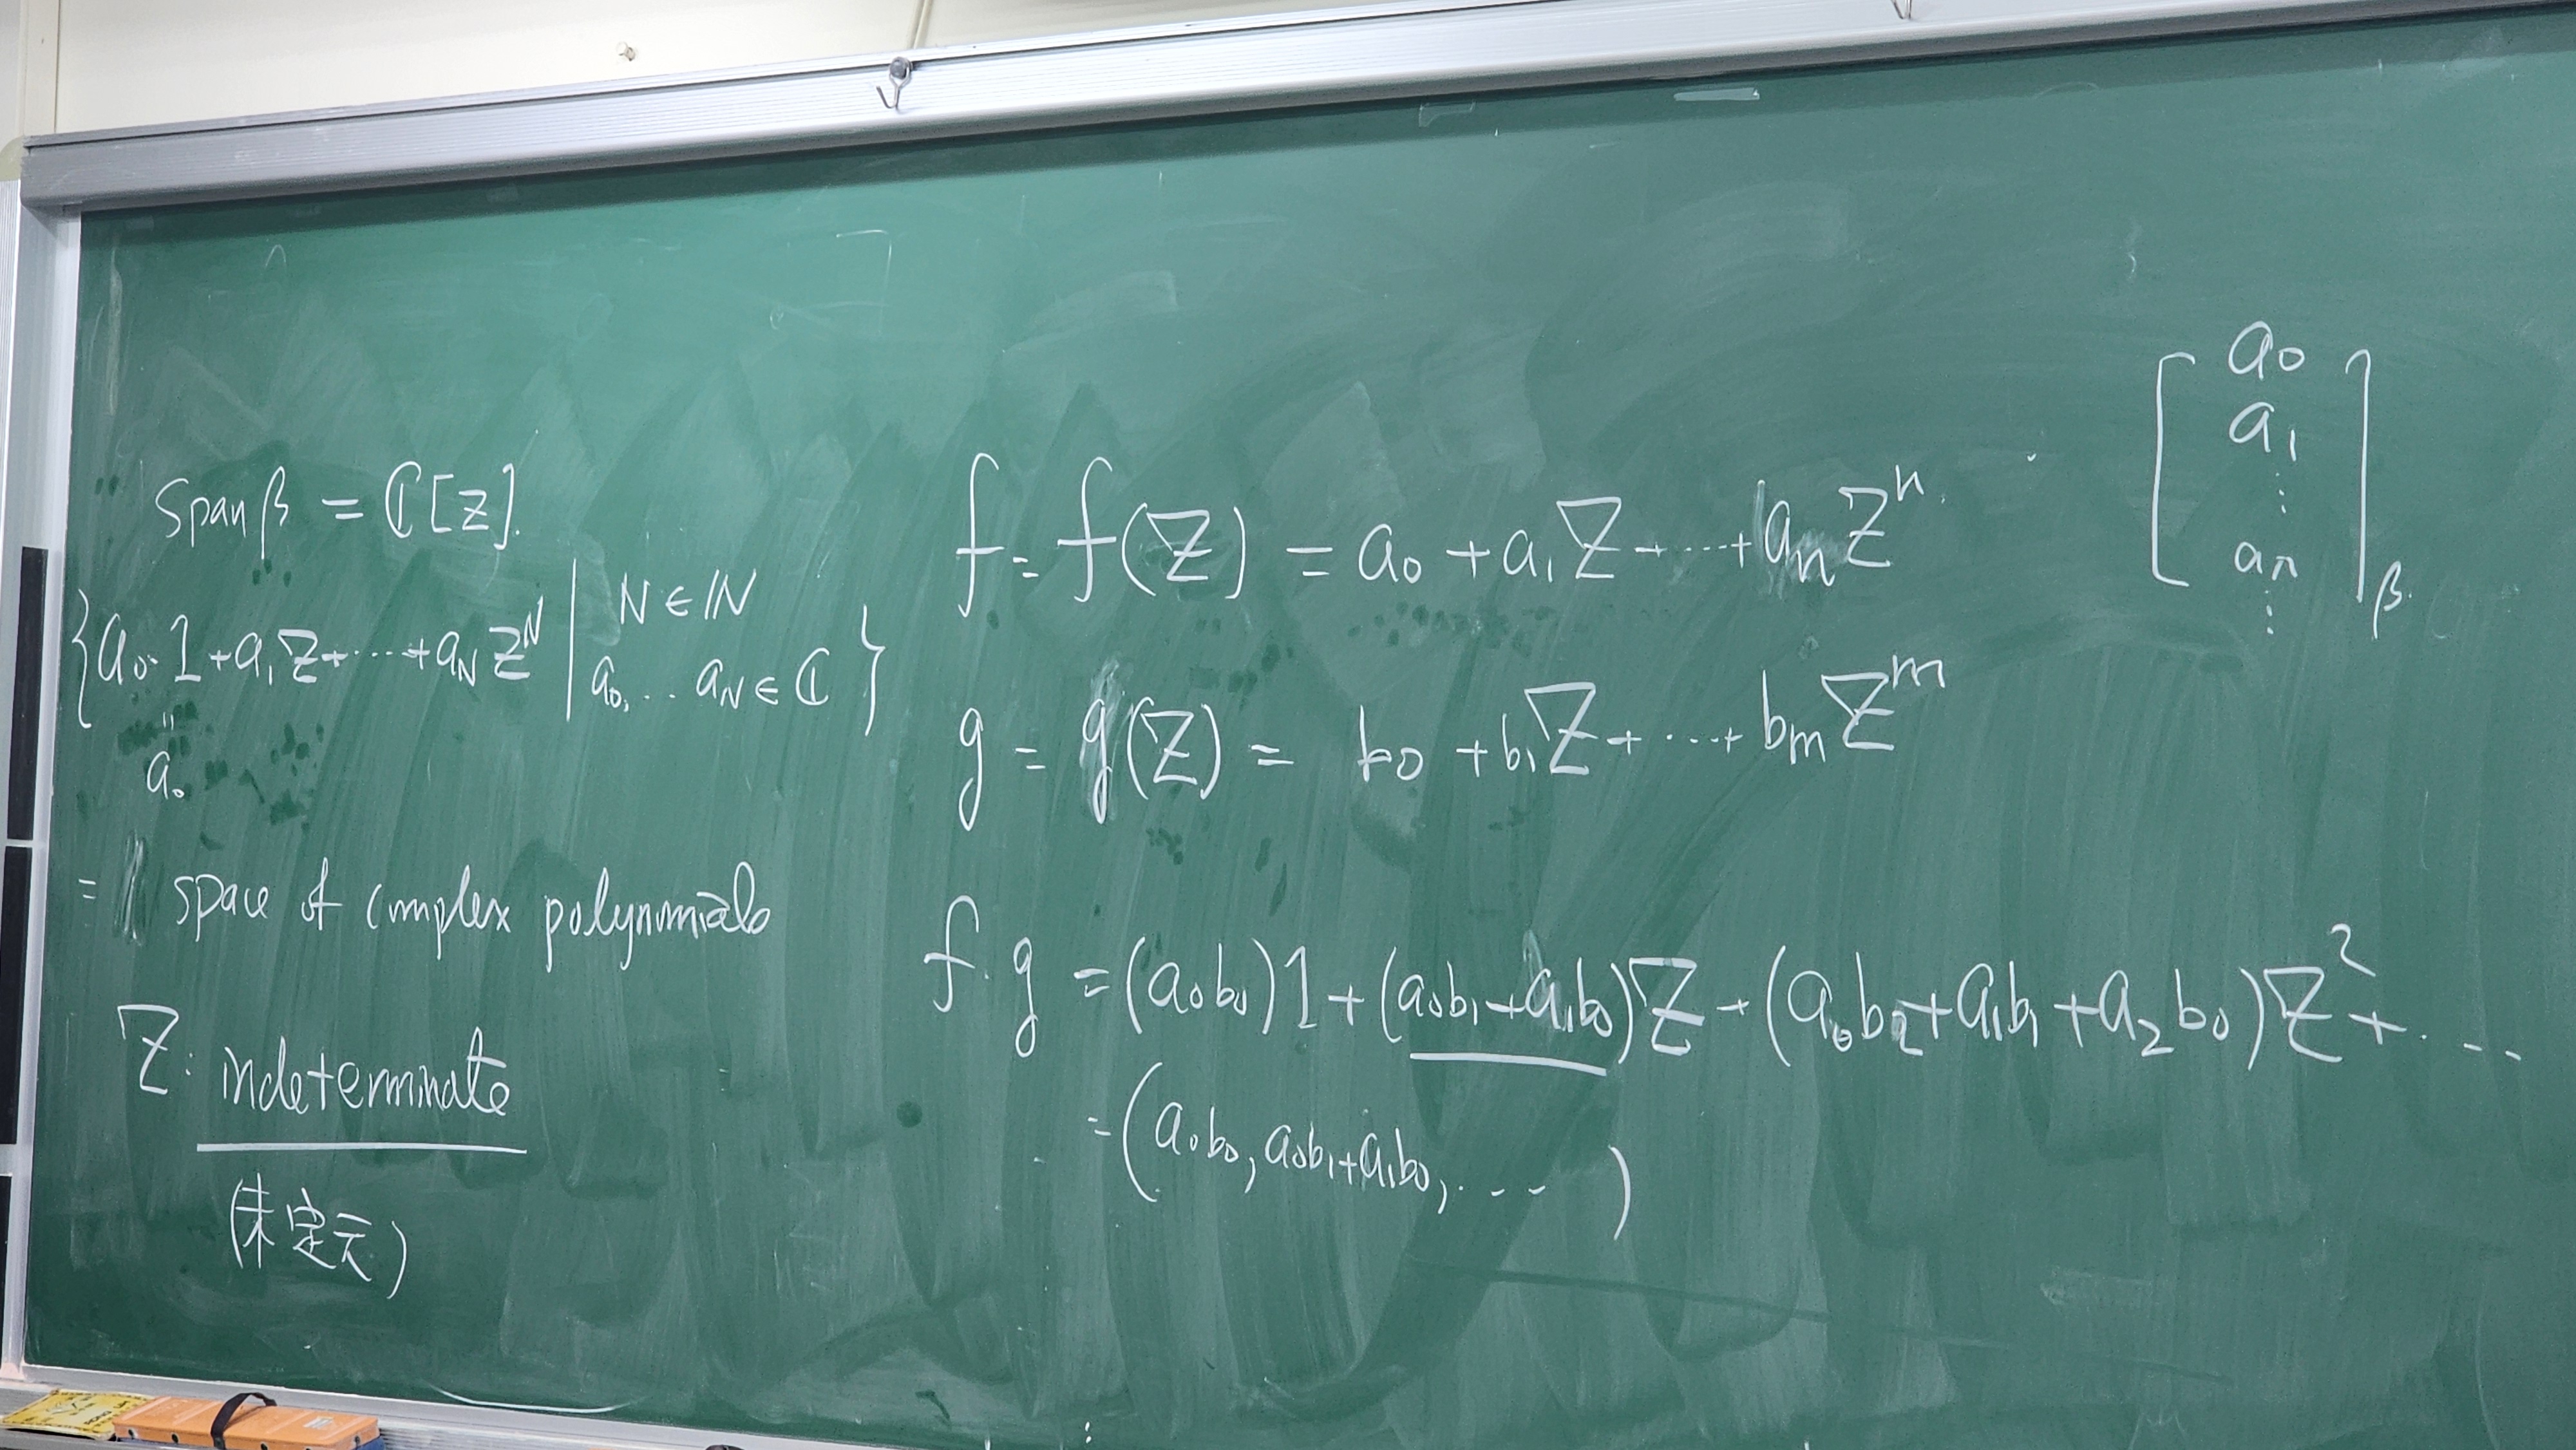 Span β = ℂ[z].
{a₀·1+a₁z+⋯+a_N z^N | N∈ℕ
a₀,… a_N∈ℂ}
"
a₀
= space of complex polynomials
Z: indeterminate
(未定元)
f = f(Z) = a₀ + a₁Z+⋯+a_n Z^n.
g = g(Z) = b₀ + b₁Z+⋯+ b_m Z^m
f·g = (a₀b₀)1 + (a₀b₁+a₁b₀)Z + (a₀b₂+a₁b₁+a₂b₀)Z²+⋯
= (a₀b₀, a₀b₁+a₁b₀, ⋯ )
[a₀
a₁
⋮
a_n
⋮]_β.